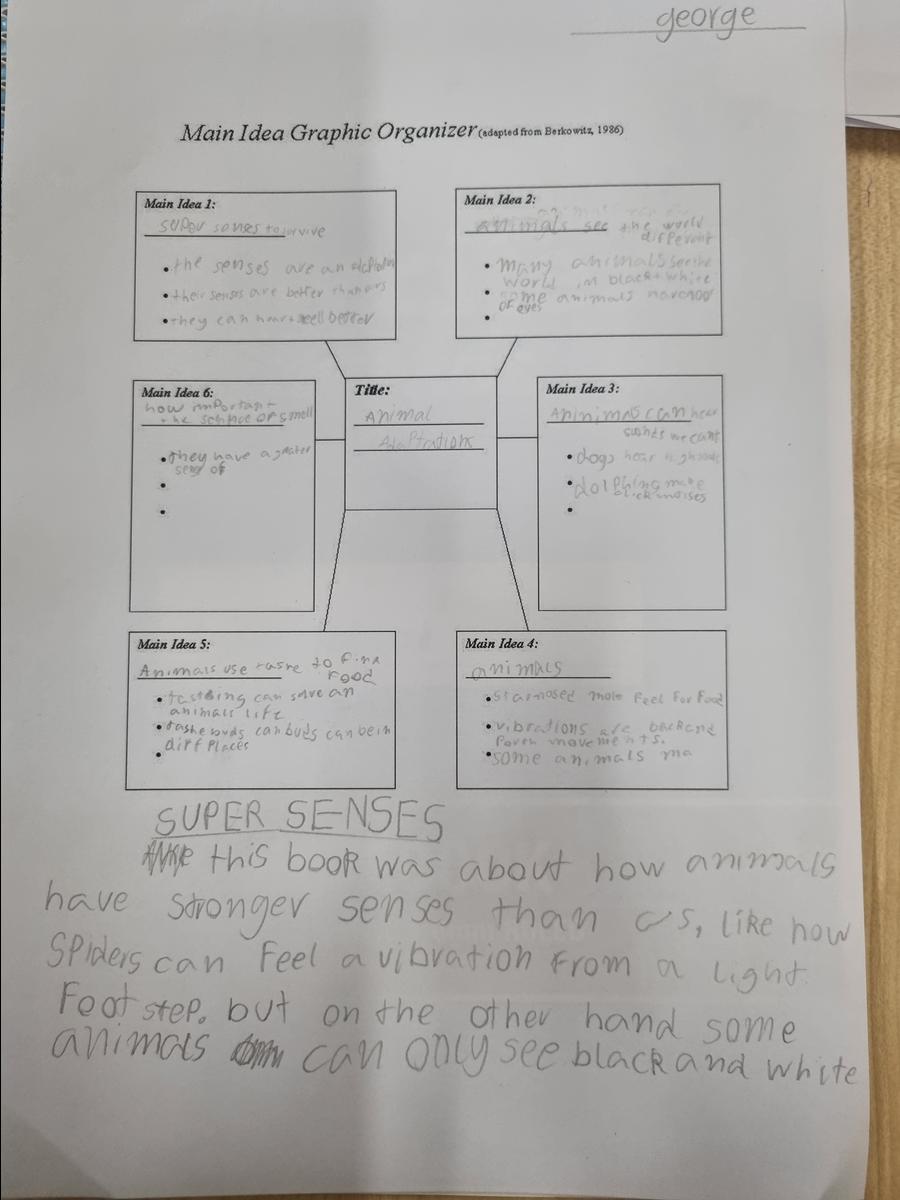 george
Main Idea Graphic Organizer (adapted from Berkowitz, 1986)
Main Idea 1:
super senses to survive
• the senses are an
• their senses are better than ours
• they can hear + smell better
Main Idea 2:
animals see the world
different
• many animals see the
world in black + white
• some animals have 100
of eyes
•
Main Idea 6:
how important
the of smell
• they have a greater
sens of
•
•
Title:
Animal
Adaptations
Main Idea 3:
Aninmals can hear
we cant
• dogs hear
• dolphins make
click noises
•
Main Idea 5:
Animals use taste to find
food
• can save an
animals life
• buds can buds can be in
diff places
•
Main Idea 4:
animals
• star nosed mole feel for food
• vibrations are back and
forth movements.
• some animals ma
SUPER SENSES
this book was about how animals
have stronger senses than us, like how
Spiders can feel a vibration from a light
Foot step. but on the other hand some
animals can only see black and white